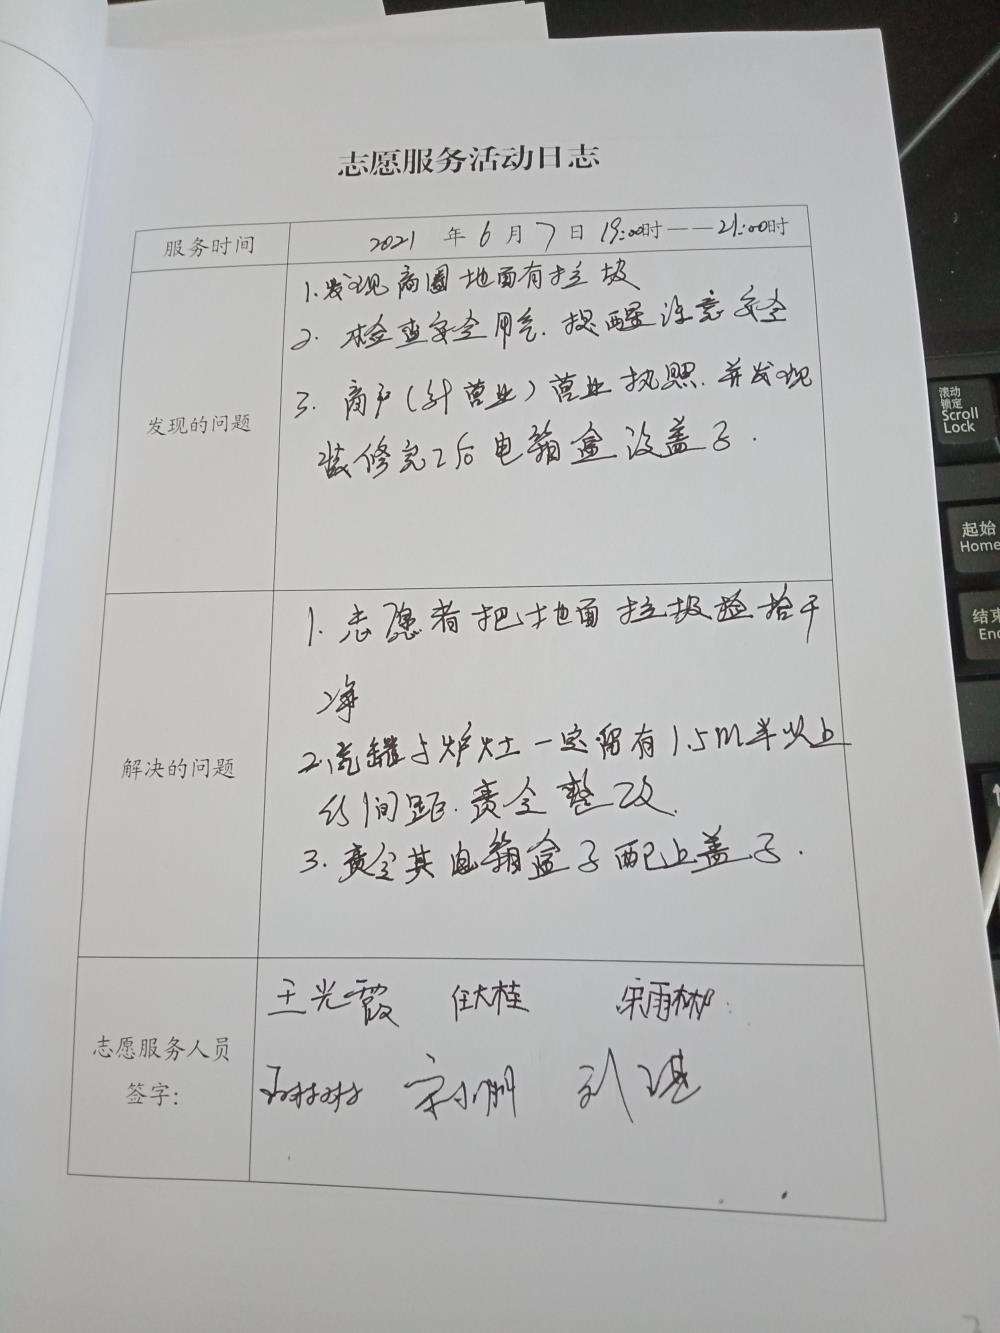 志愿服务活动日志
服务时间 2021 年 6 月 7 日 19:00时——21:00时
发现的问题
1.发现商圈地面有垃圾
2. 检查安全用气.提醒注意安全
3. 商户(外营业)营业执照.并发现
装修完工后电箱盒没盖子.
解决的问题
1. 志愿者把地面垃圾捡拾干
净
2.汽罐与炉灶一定留有1.5m以上
的间距.责令整改.
3.责令其电箱盒子配上盖子.
志愿服务人员
签字:
王光霞 任大桂 宋雨彬
宋小朋 刘
滚动
锁定
Scroll
Lock
起始
Home
结束
End